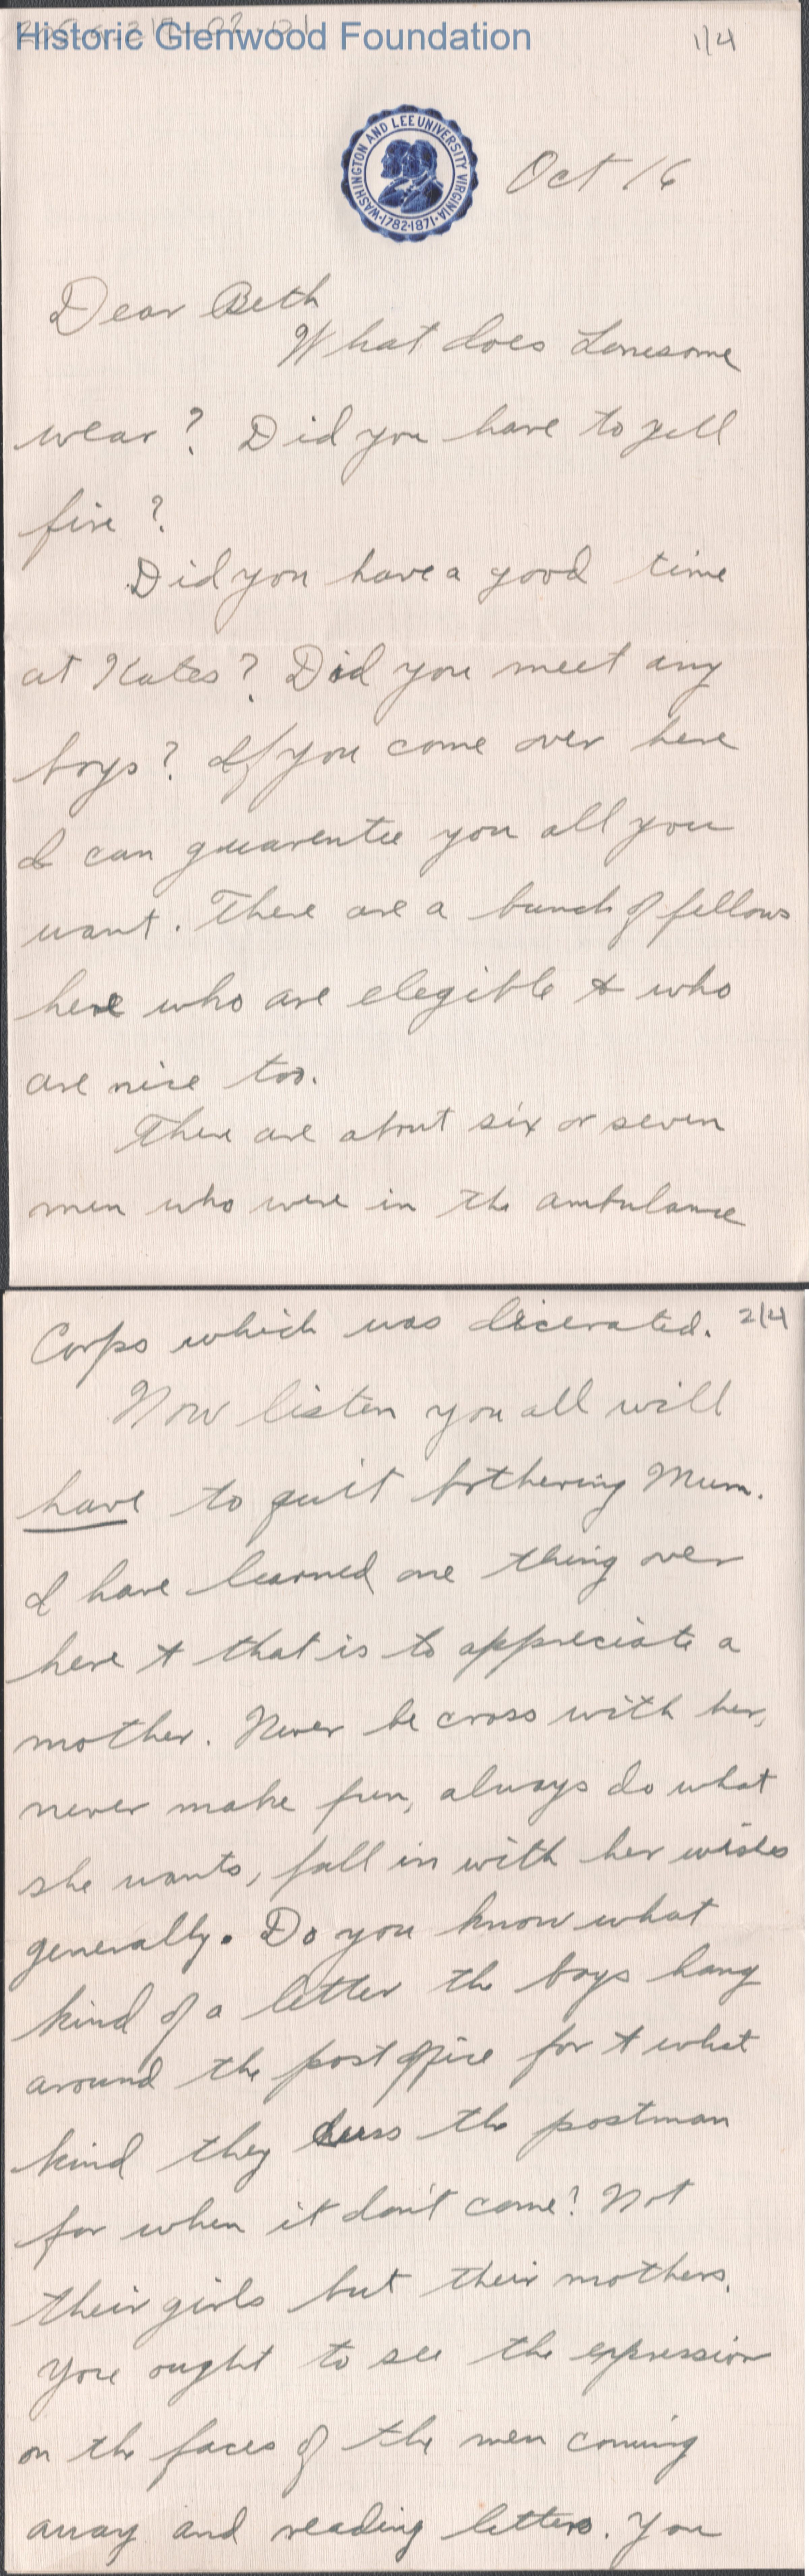 Historic Glenwood Foundation
1/4
WASHINGTON AND LEE UNIVERSITY VIRGINIA
·1782·1871·
Oct 16
Dear Beth
What does Lonesome
wear? Did you have to yell
fire?
Did you have a good time
at Kates? Did you meet any
boys? If you come over here
I can guarentee you all you
want. There are a bunch of fellows
here who are elegible & who
are nice too.
There are about six or seven
men who were in the ambulance
Corps which was decerated. 2/4
Now listen you all will
have to quit bothering Mum.
I have learned one thing over
here & that is to appreciate a
mother. Never be cross with her,
never make fun, always do what
she wants, fall in with her wishes
generally. Do you know what
kind of a letter the boys hang
around the post office for & what
kind they cuss the postman
for when it don't come? Not
their girls but their mothers.
You ought to see the expression
on the faces of the men coming
away and reading letters. You